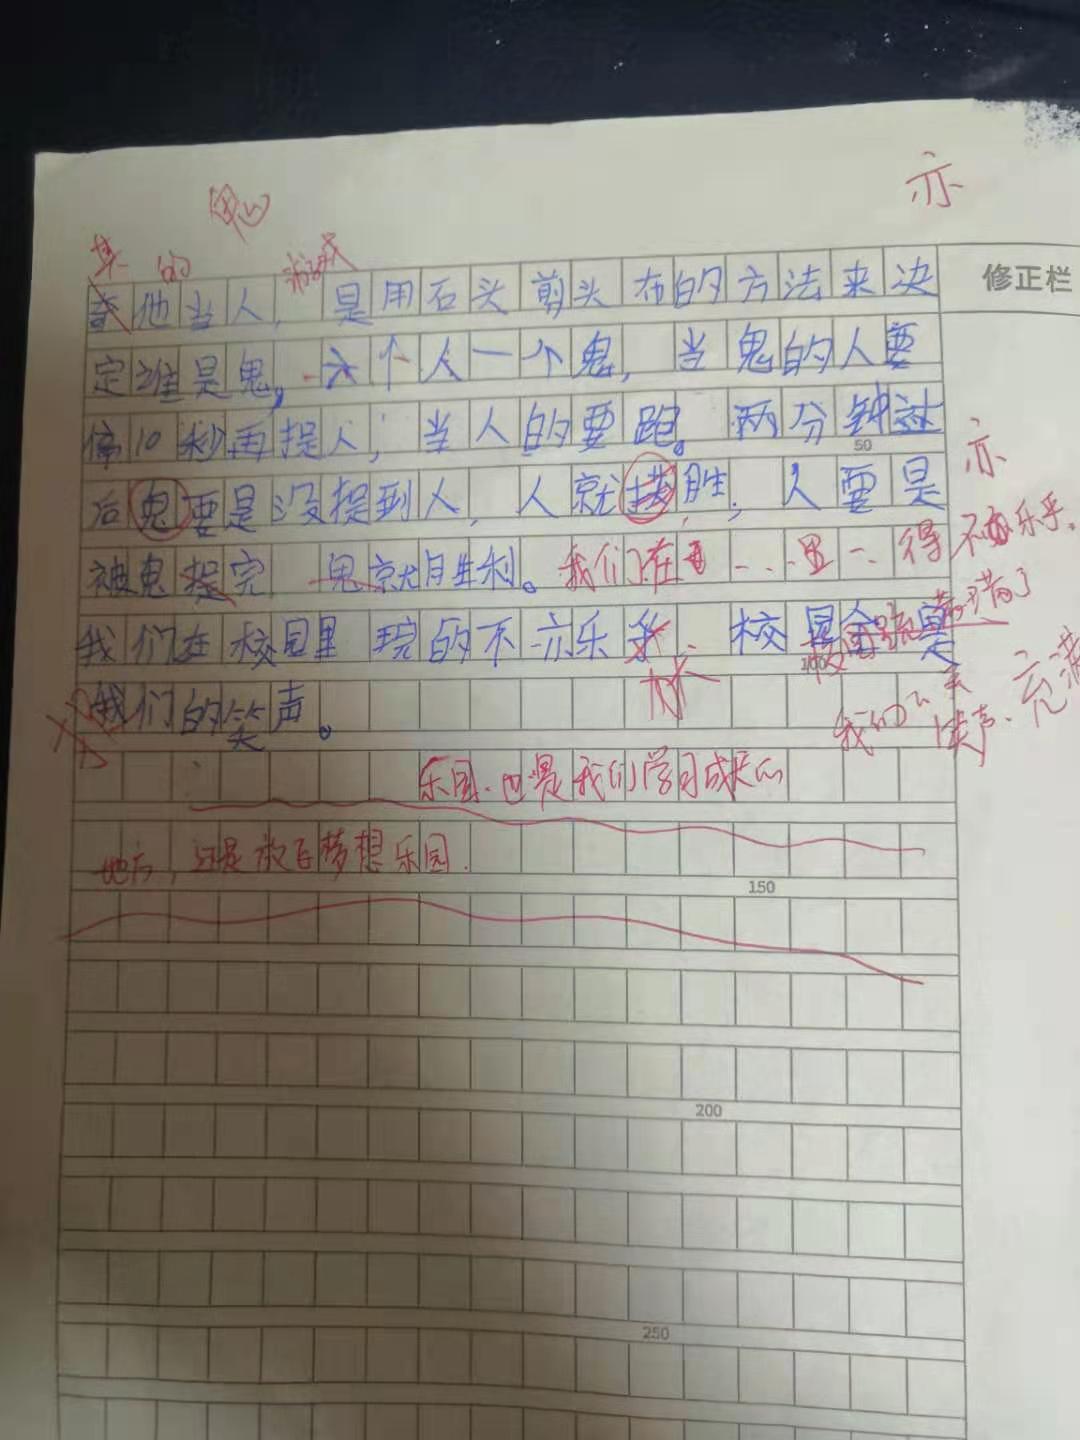 亦
其 的 游戏
他当人，是用石头剪头布的方法来决
修正栏
定谁是鬼，六个人一个鬼，当鬼的人要
停10秒再捉人，当人的要跑。两分钟过
50
亦
后鬼要是没捉到人，人就胜，人要是
被鬼捉完 鬼就胜利。我们在 里 得 不亦乐乎。
我们在校园里玩的不亦乐 校园 是
满了
100
我们的笑声。
我们 笑声 充满
乐园、也是我们学习成长的
地方，还是放飞梦想乐园.
150
200
250